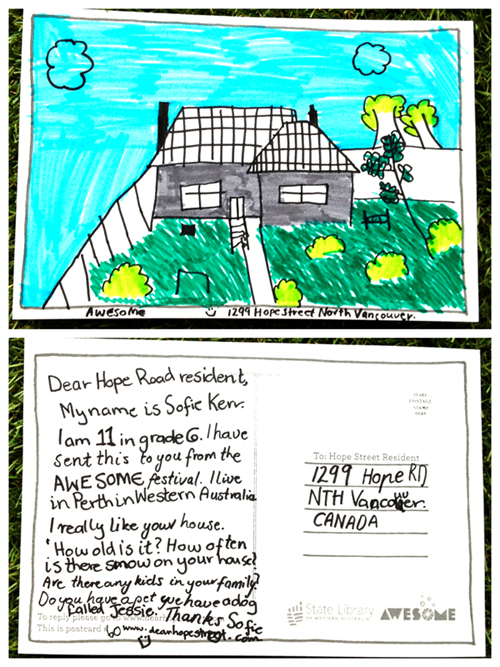 Awesome 1299 Hope Street North Vancouver.
Dear Hope Road resident,
My name is Sofie Kerr.
I am 11 in grade 6. I have
sent this to you from the
AWESOME festival. I live
in Perth in Western Australia
I really like your house.
How old is it? How often
is there snow on your house?
Are there any kids in your family?
Do you have a pet we have a dog
called Jessie. Thanks Sofie
To reply please go to www.dearhopestreet.com
This is postcard #
60
PLACE
POSTAGE
STAMP
HERE
To: Hope Street Resident
1299 Hope RD
NTH Vancouver.
CANADA
State Library
OF WESTERN AUSTRALIA
AWESOME